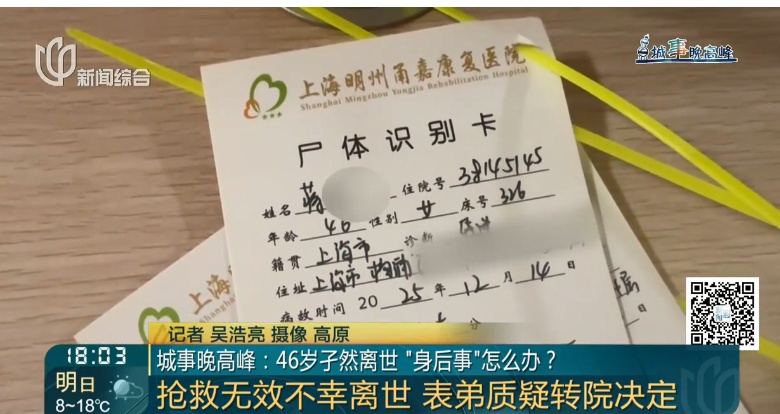 新闻综合
城事晚高峰
上海明州甬嘉康复医院
Shanghai Mingzhou Yongjia Rehabilitation Hospital
尸体识别卡
姓名 蒋 住院号 38145145
年龄 46 性别 女 床号 326
籍贯 上海市 诊断
住址 上海市
病故时间 2025年12月14日
分
上海
记者 吴浩亮 摄像 高原
18:03
城事晚高峰：46岁孑然离世 "身后事"怎么办？
明日
8~18℃
抢救无效不幸离世 表弟质疑转院决定